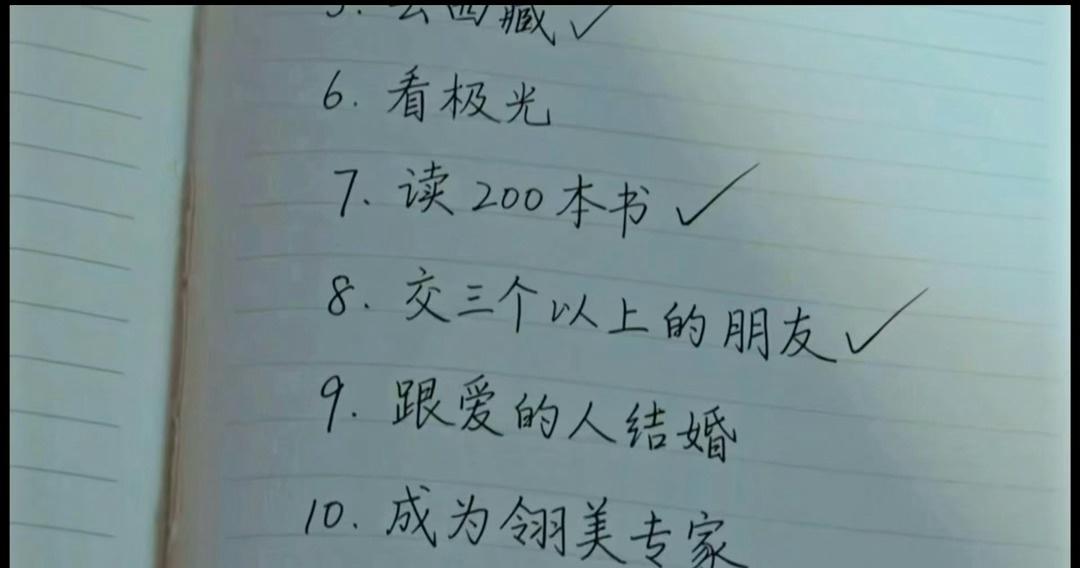 5. 去西藏 ✓
6. 看极光
7. 读200本书 ✓
8. 交三个以上的朋友 ✓
9. 跟爱的人结婚
10. 成为翎美专家